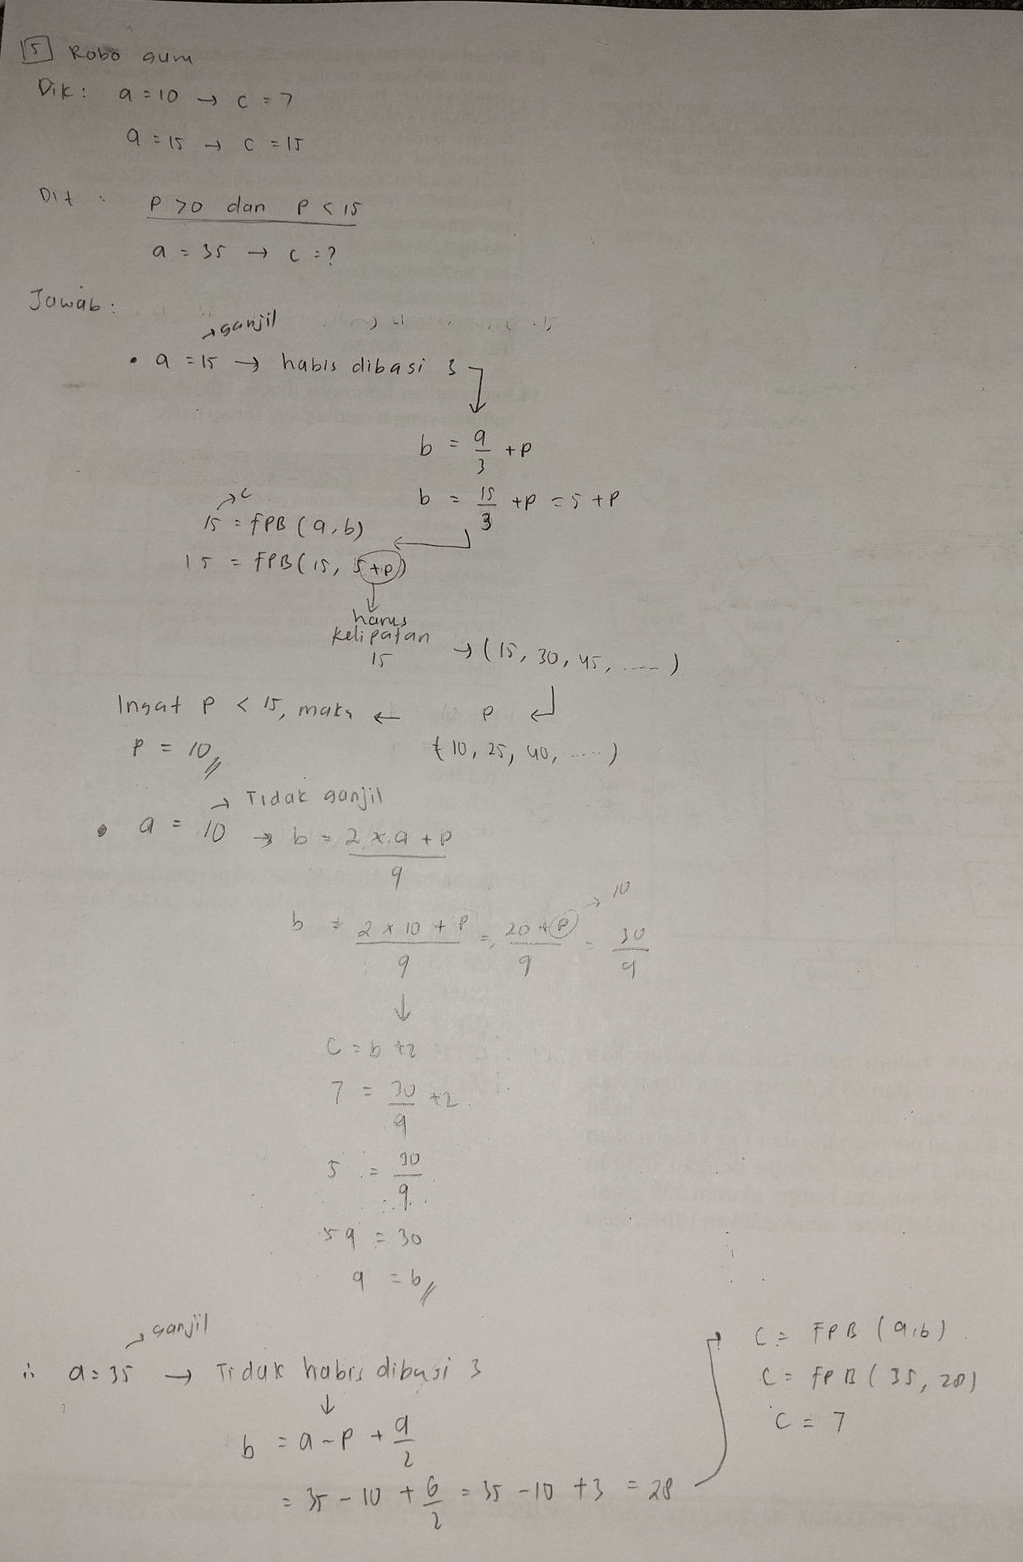 15 Robo gum
Dik : a = 10 → c = 7
a = 15 → c = 15
Dit : P > 0 dan P < 15
a = 35 → c = ?
Jawab :
→ ganjil
• a = 15 → habis dibagi 3
b = a/3 + P
b = 15/3 + P = 5 + P
→ c
15 = FPB (a, b)
15 = FPB (15, 5 + P)
harus
kelipatan
15 → (15, 30, 45, ....)
Ingat P < 15, maka ← P
P = 10 // { 10, 25, 40, .... )
→ Tidak ganjil
• a = 10 → b = (2 x a + P)/q
b = (2 x 10 + P)/q = (20 + P)/q = 30/q → 10
c = b + 2
7 = 30/q + 2
5 = 30/q
5q = 30
q = 6 //
→ ganjil
∴ a = 35 → Tidak habis dibagi 3
b = a - P + q/2
= 35 - 10 + 6/2 = 35 - 10 + 3 = 28
c = FPB (a, b)
c = FPB (35, 28)
c = 7